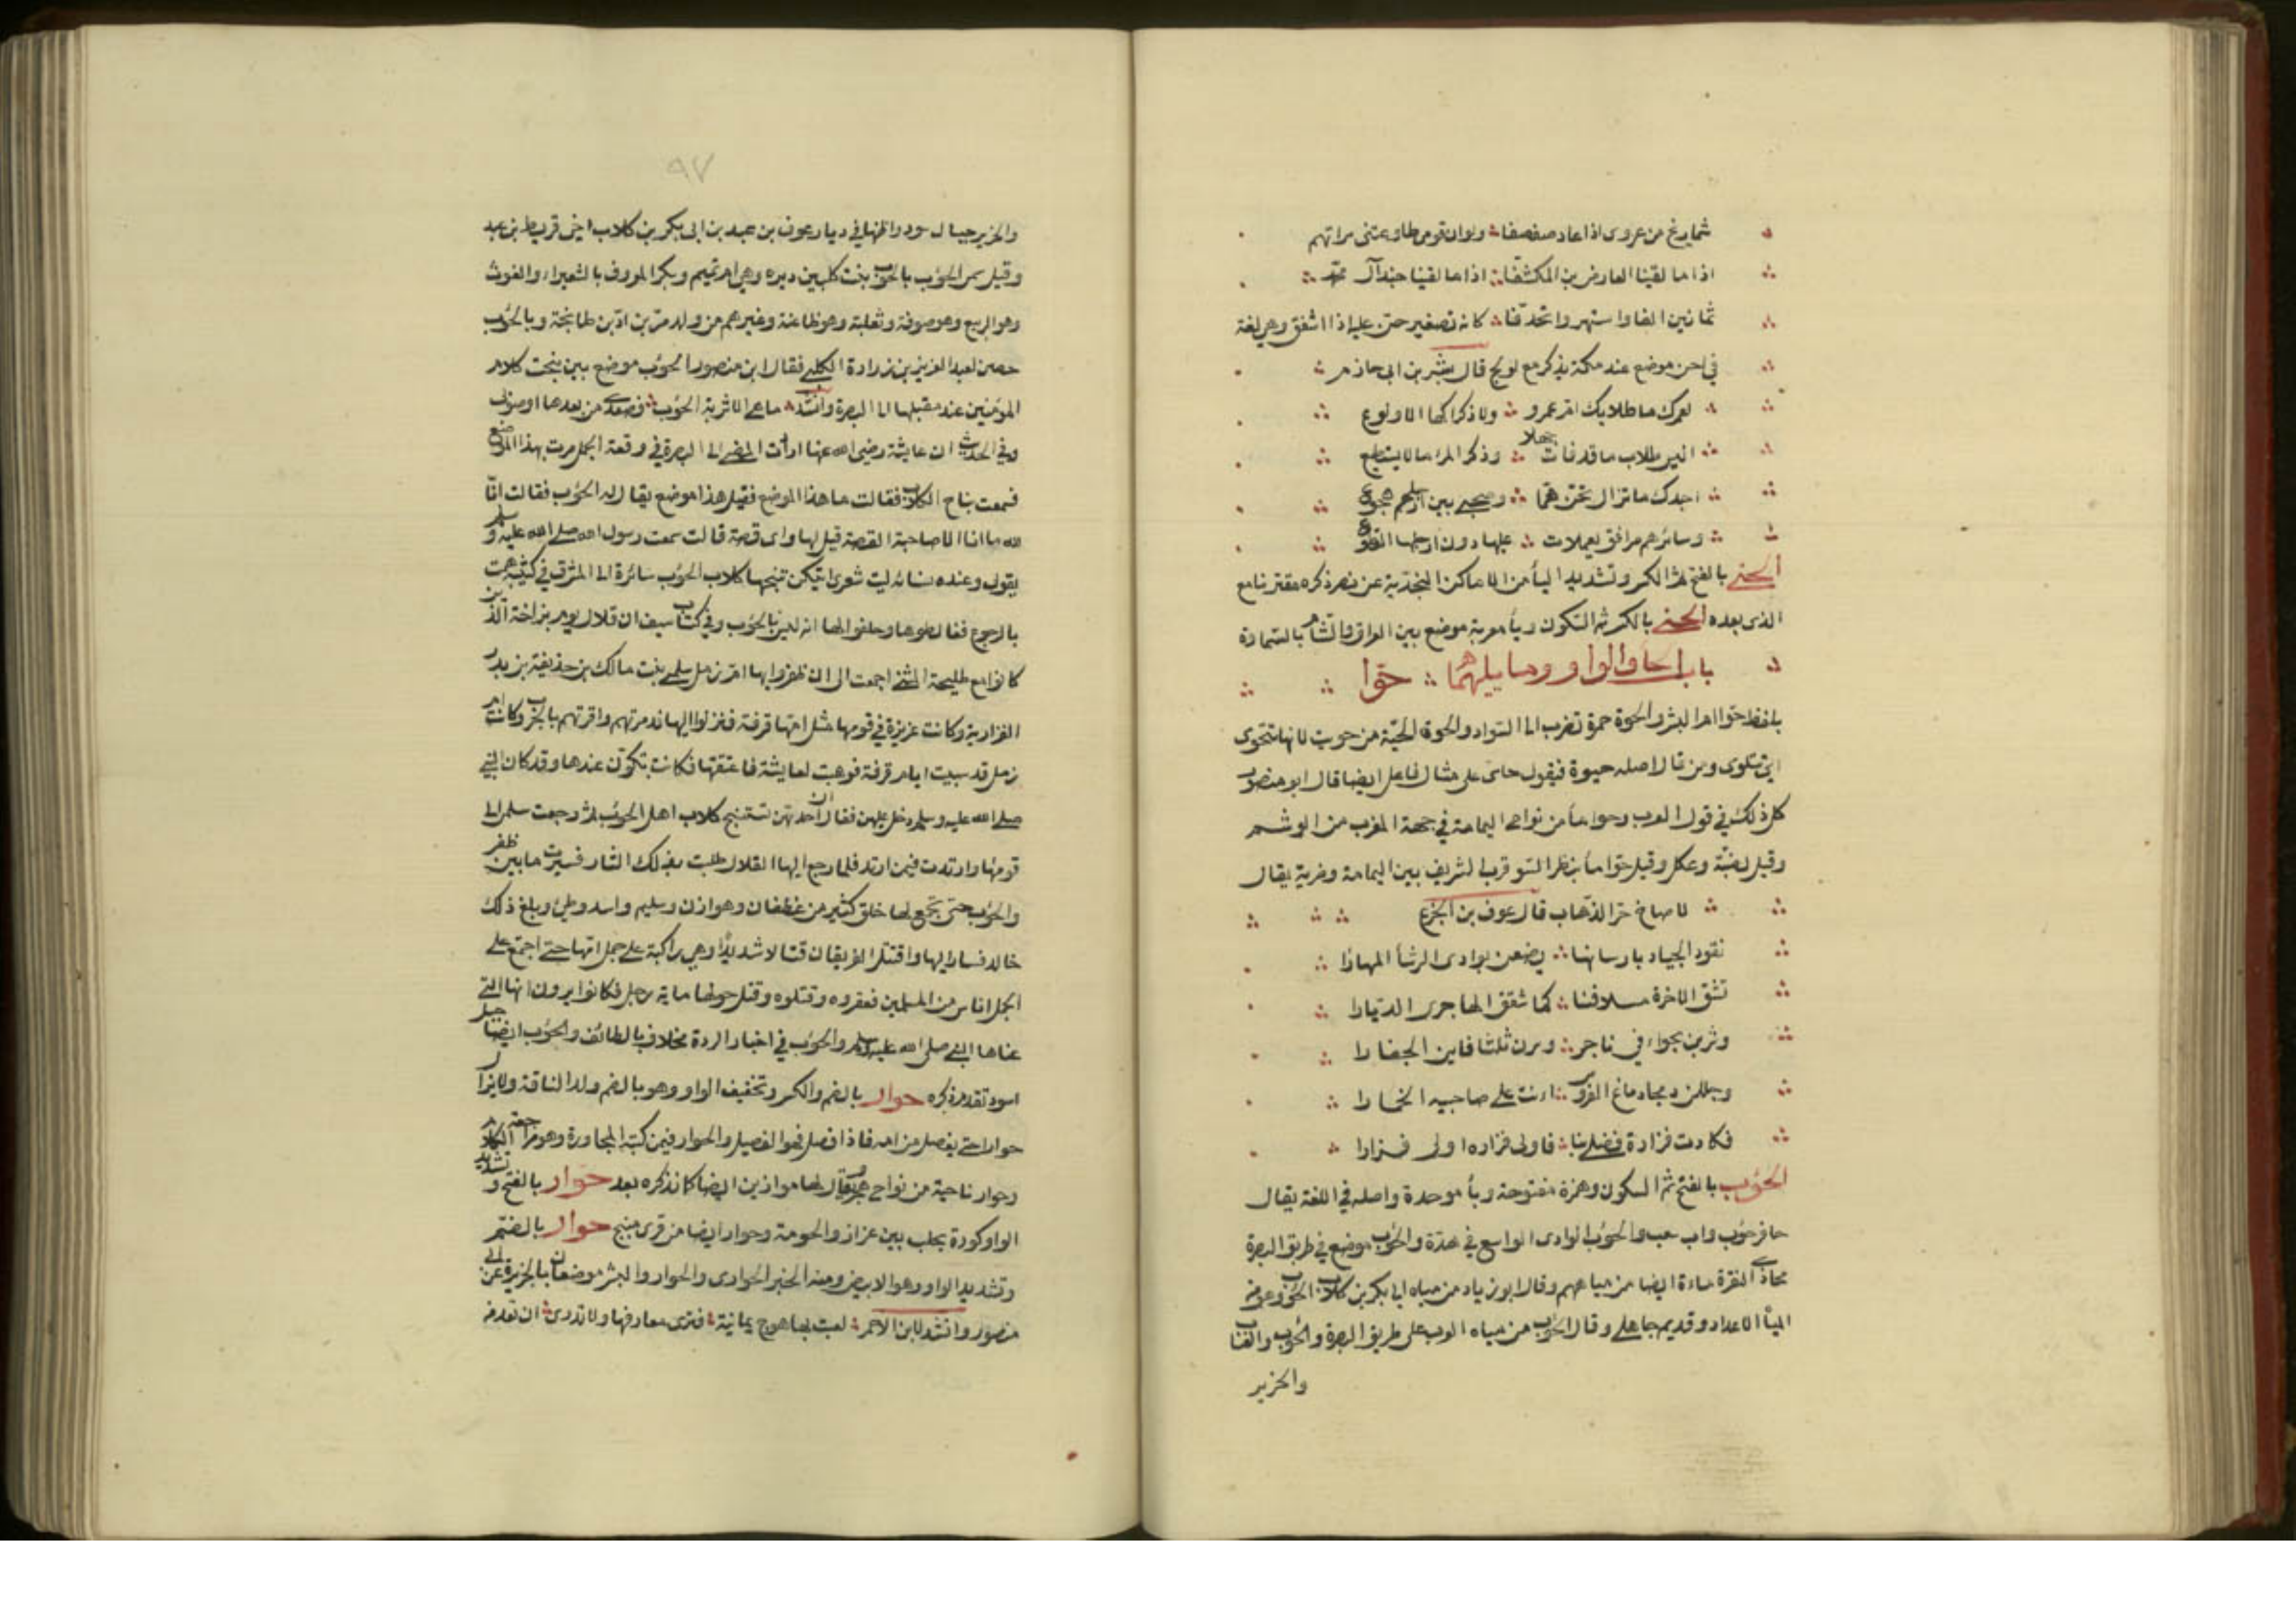 شماريخ من عروى اذا عاد صفصفا ولو ان قومى طاوعتنى سراتهم
اذا ما لقينا العارض بن المكشفا اذا ما لقينا جند آل محمد
ثمانين الفا واستهروا تحدقنا كانه تصغير حتن عليه اذا اشفق وهى لغة
فى احن موضع عند مكة يذكر مع لويح قال بشر بن ابى حازم
لعمرك ما طلابك ام عمرو ولا ذكراكها الا ولوع
اليس طلاب ما قد فات جهلا وذكر المرء ما لا يستطيع
اجدك ما تزال نحن هما وصحبى بين ارحلهم هجوع
وسائرهم مرافق يعملات عليها دون ارجلها القطوع
الحنى بالفتح ثم الكسر وتشديد اليأ من الاماكن النجدية عن نصر ذكره مقترنا مع
الذى بعده الحنى بالكسر ثم السكون ويأ معربة موضع بين العراق والشام بالسماوة
باب الحا والواو وما يليهما حوا
بلفظ حوا ام البشر والحوة حمرة تضرب الى السواد والحوة الحية من حويت لانها تتحوى
اى تتلوى ومن قال اصله حيوة فيقول حاى على مثال فاعل ايضا قال ابو منصور
كل ذلك فى قول العرب وحوا ماء من نواحى اليمامة فى جهة المغرب من الوشم
وقيل لضبة وعكل وقيل حوا ماء بنظر السو قرب الشريف بين اليمامة وضرية يقال
لاصاخ حر الذهاب قال عوف بن الجزع
نقود الجياد بارسانها يضعن بوادى الرشأ المهارا
تشق الاخرة سلافنا كما شقق الهاجرى الديارا
وشربن بحواء فى ناجر وسرن ثلثا فاين الجفارا
وجللن دمجا دماغ العروس ادنت على حاجبيه الخمارا
فكادت فزارة تصلى بنا فاولى فزارة اولى فزارا
الحوءب بالفتح ثم السكون وهمزة مفتوحة وبأ موحدة واصله فى اللغة يقال
حافر حوءب واب صعب والحوءب الوادى الواسع فى وهدة والحوءب موضع فى طريق البصرة
محاذى النقرة ماءة ايضا من مياههم وقال ابو زياد من مياه ابى بكر بن كلاب الحوءب وهو من
الميأ الاعداد وقديم جاهلى وقال الحوءب من مياه العرب على طريق البصرة والحوءب والعناب
والحزيز
٩٧
والحزيز جبال سود واظنها فى ديار عوف بن عبد بن ابى بكر بن كلاب اخى قريط بن عبد
وقيل سمى الحوءب بالحوءب بنت كلب بن وبره وهى ام تميم وبكر المعروف بالشعيراء والغوث
وهو الربيع وهو صوفة وثعلبة وهو ظاعنة وغيرهم من ولد مر بن اد بن طابخة وبالحوءب
حصن لعبد العزيز بن زرارة الكلبى فقال ابن منصور الحوءب موضع بين نبحت كلابه ام
المؤمنين عند مقبلها الى البصرة وانشد ما هى الا شربة الحوءب فصعدى من بعدها او صوبى
وفى الحديث ان عايشة رضى الله عنها ارادت المضى الى البصرة فى وقعة الجمل مرت بهذا الموضع
فسمعت نباح الكلاب فقالت ما هذا الموضع فقيل هذا موضع يقال له الحوءب فقالت انا
لله ما انا الا صاحبة القصة قيل لها واى قصة قالت سمعت رسول الله صلى الله عليه وسلم
يقول وعنده نسائه ليت شعرى ايتكن تنبحها كلاب الحوءب سائرة الى المشرق فى كتيبة وهمت
بالرجوع فغالطوها وحلفوا لها انه ليس بالحوءب وفى كتاب سيف ان فلال يوم بزاخة الذين
كانوا مع طليحة المثنى اجمعت الى ان ظفروا بها ام زمل سلمى بنت مالك بن حذيفة بن بدر
الفزارية وكانت عزيزة فى قومها مثل امها قرفة فنزلوا اليها فذمرتهم وامرتهم بالحرب وكانت ام
زمل قد سبيت ايام قرفة فوهبت لعايشة فاعتقتها فكانت تكون عندها وقد كان النبى
صلى الله عليه وسلم دخل عليهن فقال ان احديكن تستنبح كلاب اهل الحوءب ثم رجعت سلمى الى
قومها وارتدت فيمن ارتد فلما رجع اليها الفلال طلبت بذلك الثار فسيرت ما بين ظفر
والحوءب حتى تجمع لها خلق كثير من غطفان وهوازن وسليم واسد وطئ وبلغ ذلك
خالد فسار اليها واقتتل الفريقان قتالا شديدا وهى راكبة على جمل امها حتى اجتمع على
الجمل اناس من المسلمين فعقروه وقتلوه وقتل حولها ماية رجل فكانوا يرون انها التى
عناها النبى صلى الله عليه وسلم والحوءب فى اخبار الردة مخلاف بالطائف والحوءب ايضا جبل
اسود تقدم ذكره حوار بالضم والكسر وتخفيف الواو وهو بالضم ولد الناقة ولا يزال
حوارا حتى يفصل من امه فاذا فصل فهو الفصيل والحوار فيمن كسر المجاورة وهو مراجعة الكلام
وحوار ناحية من نواحى هجر يقال لها موازين ايضا كما نذكره بعد حوار بالفتح وتشديد
الواو كورة بحلب بين عزاز والحومة وحوار ايضا من قرى منبج حوار بالضم
وتشديد الواو وهو الابيض ومنه الخبز الحوارى والحوار والبشر موضعان بالجزيرة عن ابى
منصور وانشد لابن الاحمر لعبت بها هوج يمانية فترى معارفها ولا تدرى ان تعرفه